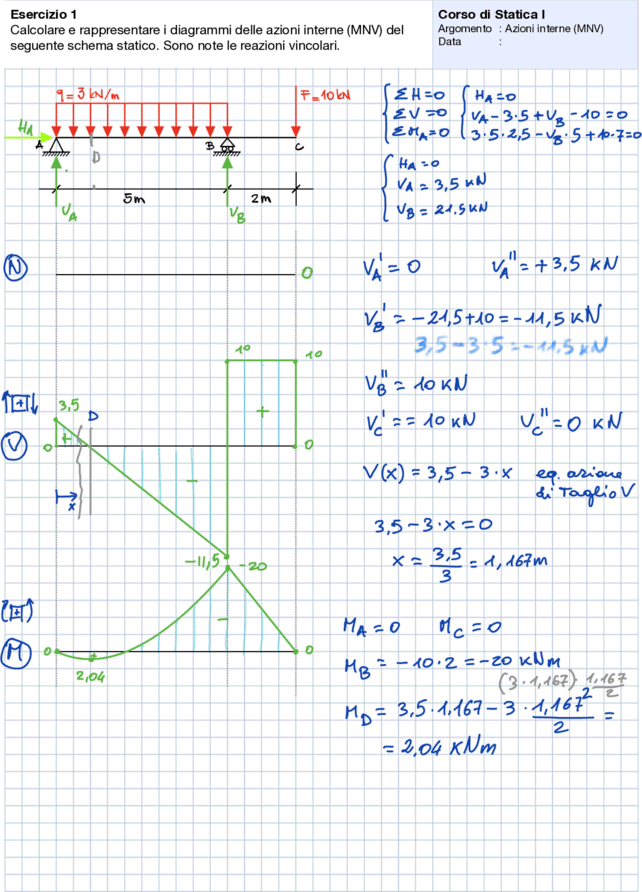 Esercizio 1
Calcolare e rappresentare i diagrammi delle azioni interne (MNV) del
seguente schema statico. Sono note le reazioni vincolari.
Corso di Statica I
Argomento : Azioni interne (MNV)
Data :
q = 3 kN/m
F = 10 kN
HA
A
D
B
C
VA
5m
VB
2m
ΣH=0
ΣV=0
ΣMA=0
HA=0
VA-3·5+VB-10=0
3·5·2,5-VB·5+10·7=0
HA=0
VA = 3,5 kN
VB = 21.5 kN
N
0
VA' = 0
VA'' = +3,5 kN
VB' = -21,5+10 = -11,5 kN
3,5-3·5 = -11,5 kN
VB'' = 10 kN
VC' = = 10 kN
VC'' = 0 kN
10
10
+
3,5
D
V
0
+
-
0
x
-11,5
V(x) = 3,5 - 3·x
eq. azione
di Taglio V
3,5-3·x = 0
x = 3,5/3 = 1,167m
-20
+
M
0
-
0
2,04
MA = 0
MC = 0
MB = -10·2 = -20 kNm
(3·1,167)·1,167/2
MD = 3,5·1,167 - 3·1,167²/2 =
= 2,04 KNm